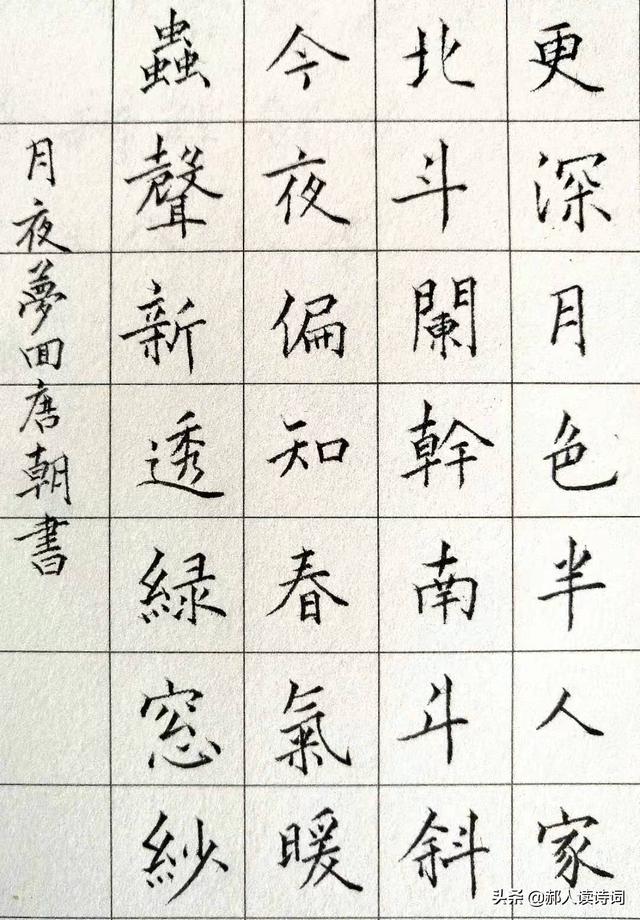 更深月色半人家
北斗闌幹南斗斜
今夜偏知春氣暖
蟲聲新透綠窓紗
月夜夢回唐朝書
头条 @郝人读诗词